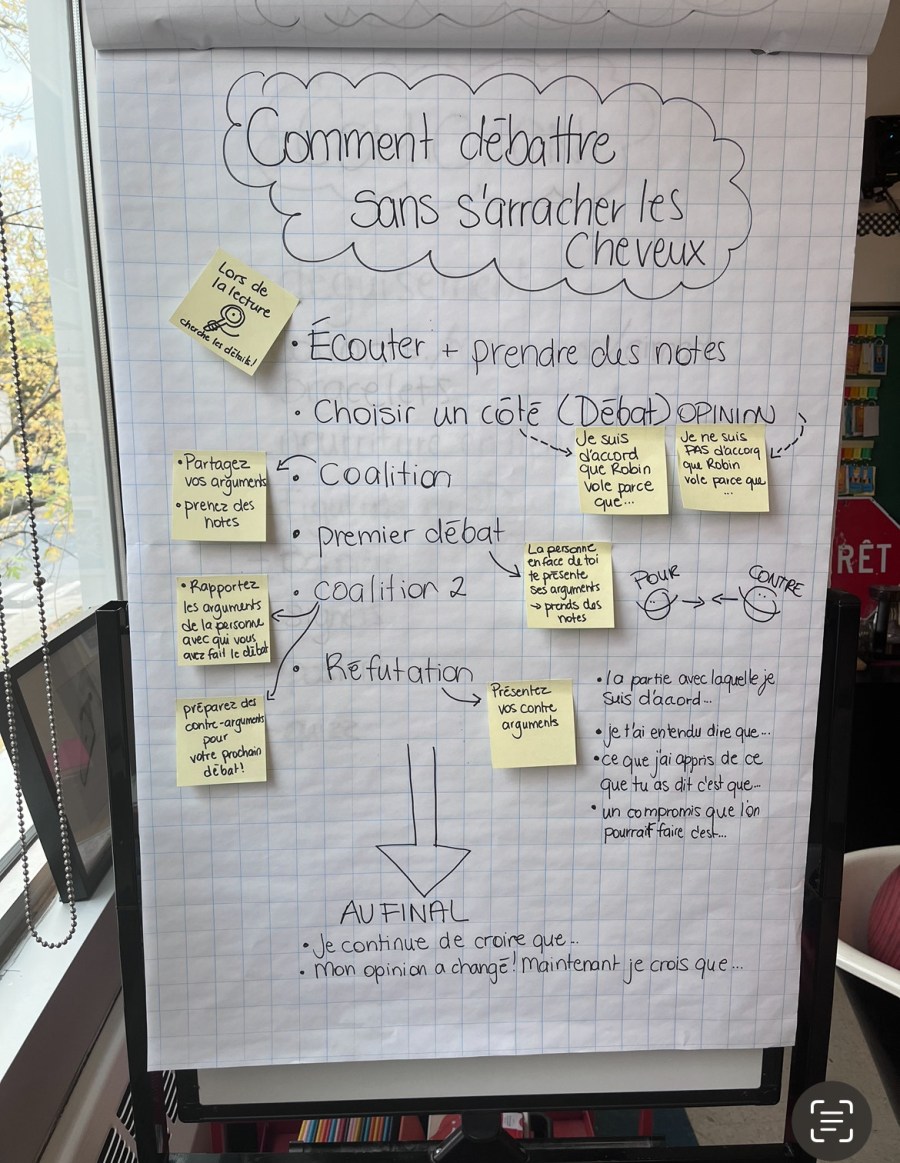 Comment débattre
sans s'arracher les
cheveux
Lors de
la lecture
cherche les détails!
• Écouter + prendre des notes
• Choisir un côté (Débat) OPINION
Je suis
d'accord
que Robin
vole parce
que...
Je ne suis
PAS d'accord
que Robin
vole parce que
...
• Coalition
• Partagez
vos arguments
• prenez des
notes
• premier débat
La personne
en face de toi
te présente
ses arguments
→ prends des
notes
POUR
CONTRE
• coalition 2
• Rapportez
les arguments
de la personne
avec qui vous
avez fait le débat
préparez des
contre-arguments
pour
votre prochain
débat!
• Réfutation
Présentez
vos contre
arguments
• la partie avec laquelle je
suis d'acord...
• je t'ai entendu dire que...
• ce que j'ai appris de ce
que tu as dit c'est que...
• un compromis que l'on
pourrait faire c'est...
AU FINAL
• Je continue de croire que...
• Mon opinion a changé! Maintenant je crois que...
RÊT